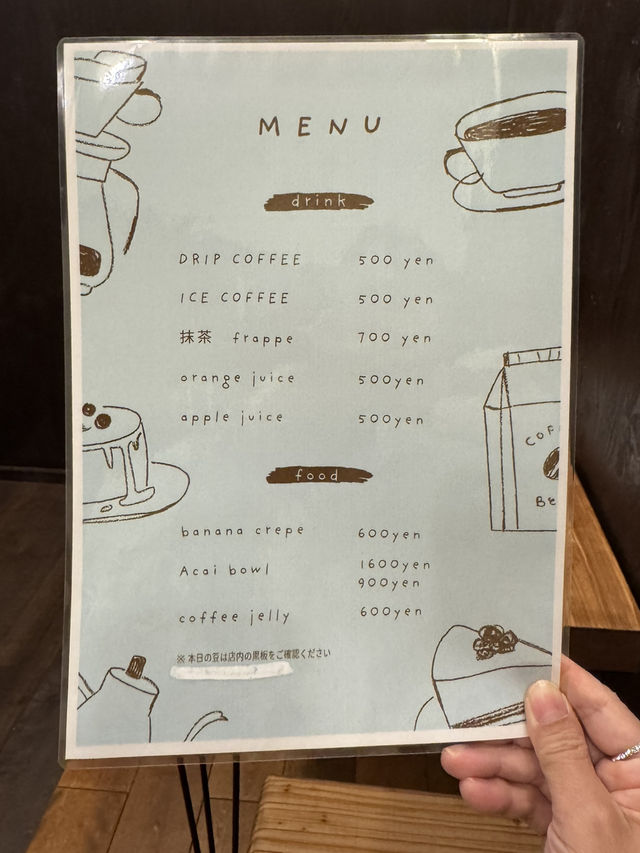 MENU
drink
DRIP COFFEE 500 yen
ICE COFFEE 500 yen
抹茶 frappe 700 yen
orange juice 500yen
apple juice 500yen
food
banana crepe 600yen
Acai bowl 1600yen
900yen
coffee jelly 600yen
※ 本日の豆は店内の黒板をご確認ください
COF
Be